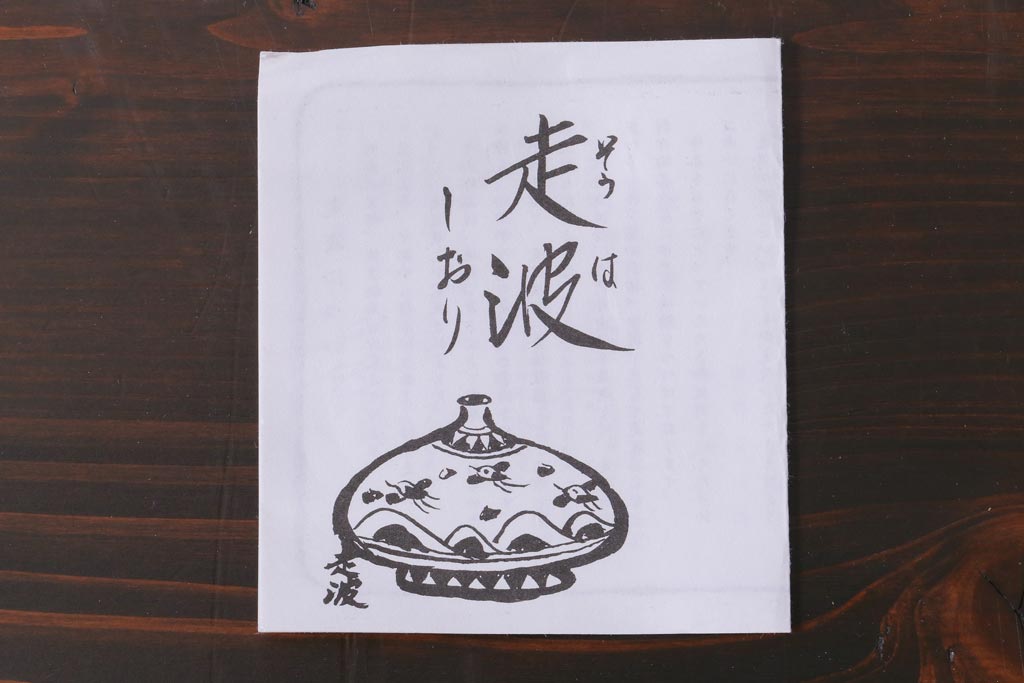 走波
そうは
しおり
走波